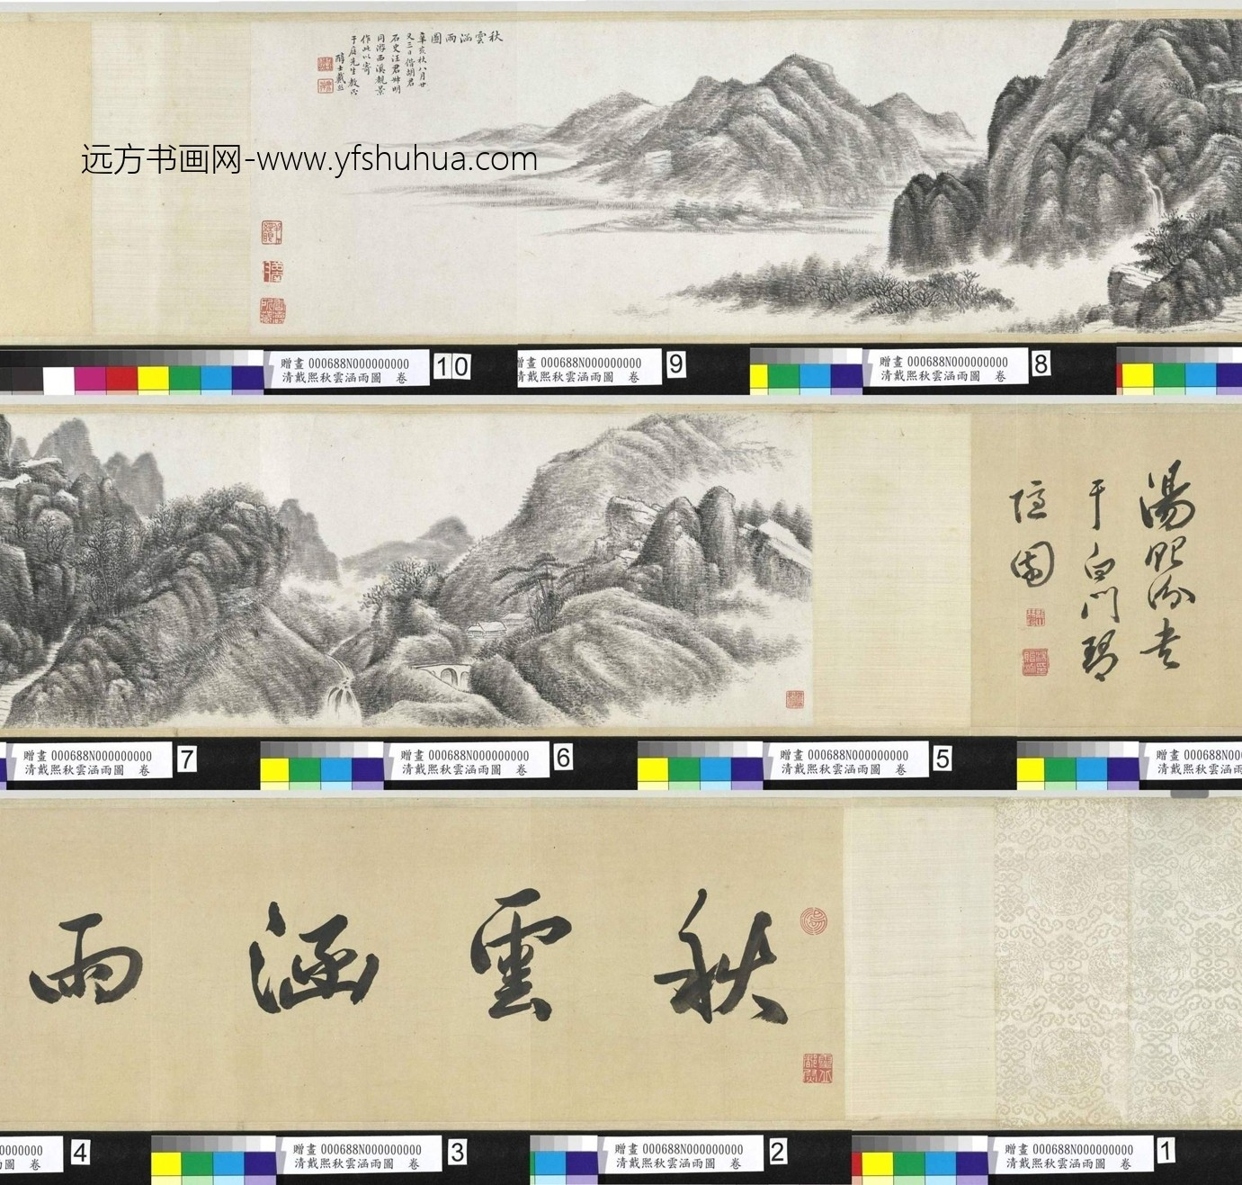 秋雲涵雨圖
辛亥秋八月廿
又三日偕胡君
石史汪君
同游西溪觀景
作此以寄
于庭先生教正
醇士戴熙
远方书画网-www.yfshuhua.com
贈畫 000688N000000000
清戴熙秋雲涵雨圖 卷
10
贈畫 000688N000000000
清戴熙秋雲涵雨圖 卷
9
贈畫 000688N000000000
清戴熙秋雲涵雨圖 卷
8
湯貽汾書
于白門琴
隱園
贈畫 000688N000000000
清戴熙秋雲涵雨圖 卷
7
贈畫 000688N000000000
清戴熙秋雲涵雨圖 卷
6
贈畫 000688N000000000
清戴熙秋雲涵雨圖 卷
5
贈畫 000688N00000
清戴熙秋雲涵雨
秋雲涵雨
0000000
圖 卷
4
贈畫 000688N000000000
清戴熙秋雲涵雨圖 卷
3
贈畫 000688N000000000
清戴熙秋雲涵雨圖 卷
2
贈畫 000688N000000000
清戴熙秋雲涵雨圖 卷
1